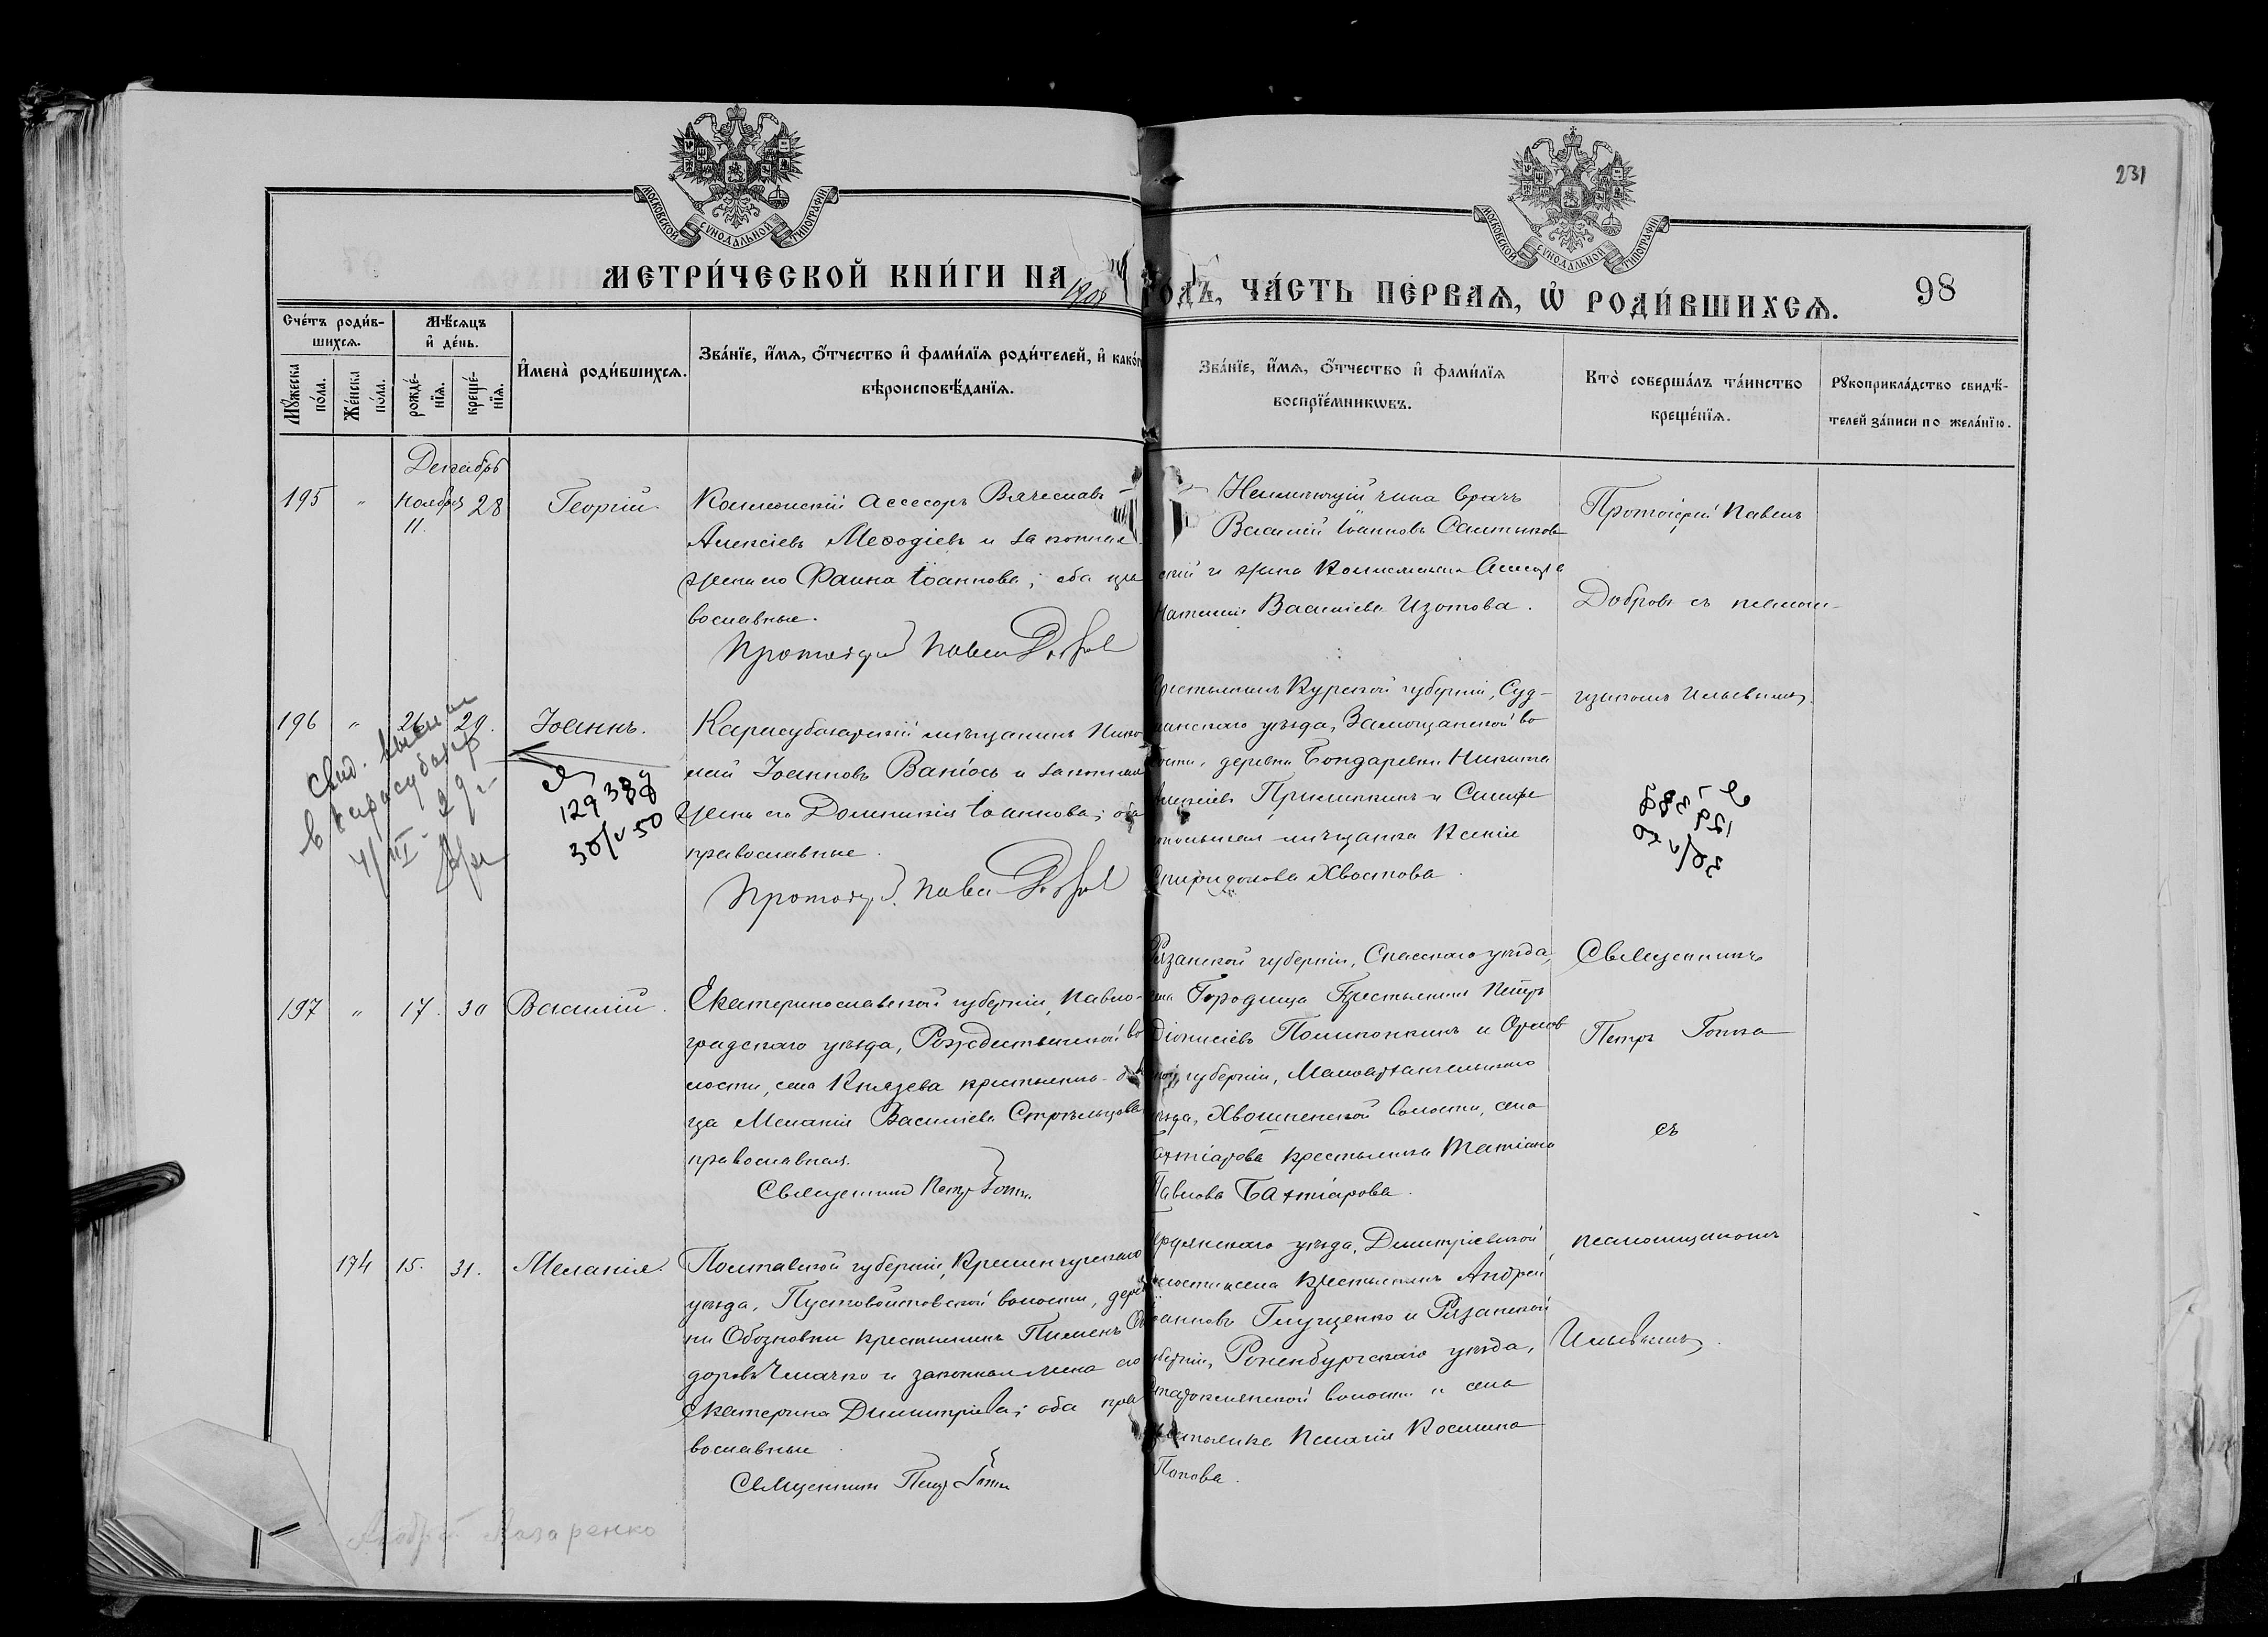 231
МОСКОВСКОЙ СѴНОДАЛЬНОЙ ТИПОГРАФІИ
МОСКОВСКОЙ СѴНОДАЛЬНОЙ ТИПОГРАФІИ
МЕТРИ́ЧЕСКОЙ КНИ́ГИ НА 1908 ГОДЪ, ЧА́СТЬ ПЕ́РВАѦ, Ѡ҆ РОДИ́ВШИХСѦ.
98
Сче́тъ роди́в-
шихсѧ.
Мѣ́сѧцъ
и҆ де́нь.
Мꙋ́жеска
по́ла.
Же́нска
по́ла.
рожде́-
нїѧ.
креще́-
нїѧ.
И҆мена̀ роди́вшихсѧ.
Зва́нїе, и҆́мѧ, ѻ҆́тчество и҆ фами́лїѧ роди́телей, и҆ како́гѡ
вѣроисповѣ́данїѧ.
Зва́нїе, и҆́мѧ, ѻ҆́тчество и҆ фами́лїѧ
воспрїе́мникѡвъ.
Кто̀ соверша́лъ та́инство
креще́нїѧ.
Рꙋкоприкла́дство свидѣ́-
телей за́писи по жела́нїю.
Декабрь
195 " Ноября 11. 28 Георгій.
Коллежскій Ассесоръ Вячеславъ
Алексіевъ Меѳодіевъ и законная
жена его Фаина Іоаннова; оба пра
вославные.
Протоіерей Павелъ Добровъ
Неимѣющій чина врачъ
Василій Іоанновъ Салтыков
скій и жена Коллежскаго Ассесора
Наталія Васильева Изотова.
Протоіерей Павелъ
Добровъ съ псалом-
щикомъ Ильевымъ.
196 " 26 29. Іоаннъ.
Карасубазарскій мѣщанинъ Нико
лай Іоанновъ Ваніосъ и законная
жена его Домникія Іоаннова; оба
православные.
Протоіерей Павелъ Добровъ
Крестьянинъ Курской губерніи, Суд-
жанскаго уѣзда, Замощанской во
лости, деревни Бондаревки Никита
Алексіевъ Прилипкинъ и Симфе
ропольская мѣщанка Ксенія
Спиридонова Хвостова.
Свид.
в Карасубазар
4/III- 29 г.
129388
30/V 50
197 " 17. 30 Василій.
Екатеринославской губерніи, Павло-
градскаго уѣзда, Рождественской во
лости, села Князева крестьянка-дѣви
ца Меланія Васильева Стрѣльцова,
православная.
Священникъ Петръ Готка
Рязанской губерніи, Спасскаго уѣзда,
села Городища Крестьянинъ Петръ
Діонисіевъ Полипонкинъ и Орлов
ской губерніи, Малоархангельскаго
уѣзда, Хвощненской волости, села
Бахтіарова крестьянка Татіана
Павлова Бахтіарова.
Священникъ
Петръ Готка
съ
псаломщикомъ
Ильевымъ.
174 15. 31. Меланія.
Полтавской губерніи, Кременчугскаго
уѣзда, Пустовойтовской волости, дерев
ни Обозновки крестьянинъ Пименъ
доровъ Чмачко и законная жена его
Екатерина Димитріева; оба пра
вославные
Священникъ Петръ Готка
Бердянскаго уѣзда, Димитріевской
волости и села Крестьянинъ Андрей
Іоанновъ Глущенко и Рязанской
губерніи, Раненбургскаго уѣзда,
волости и села
крестьянка Пелагія Космина
Попова.
Андрей Назаренко